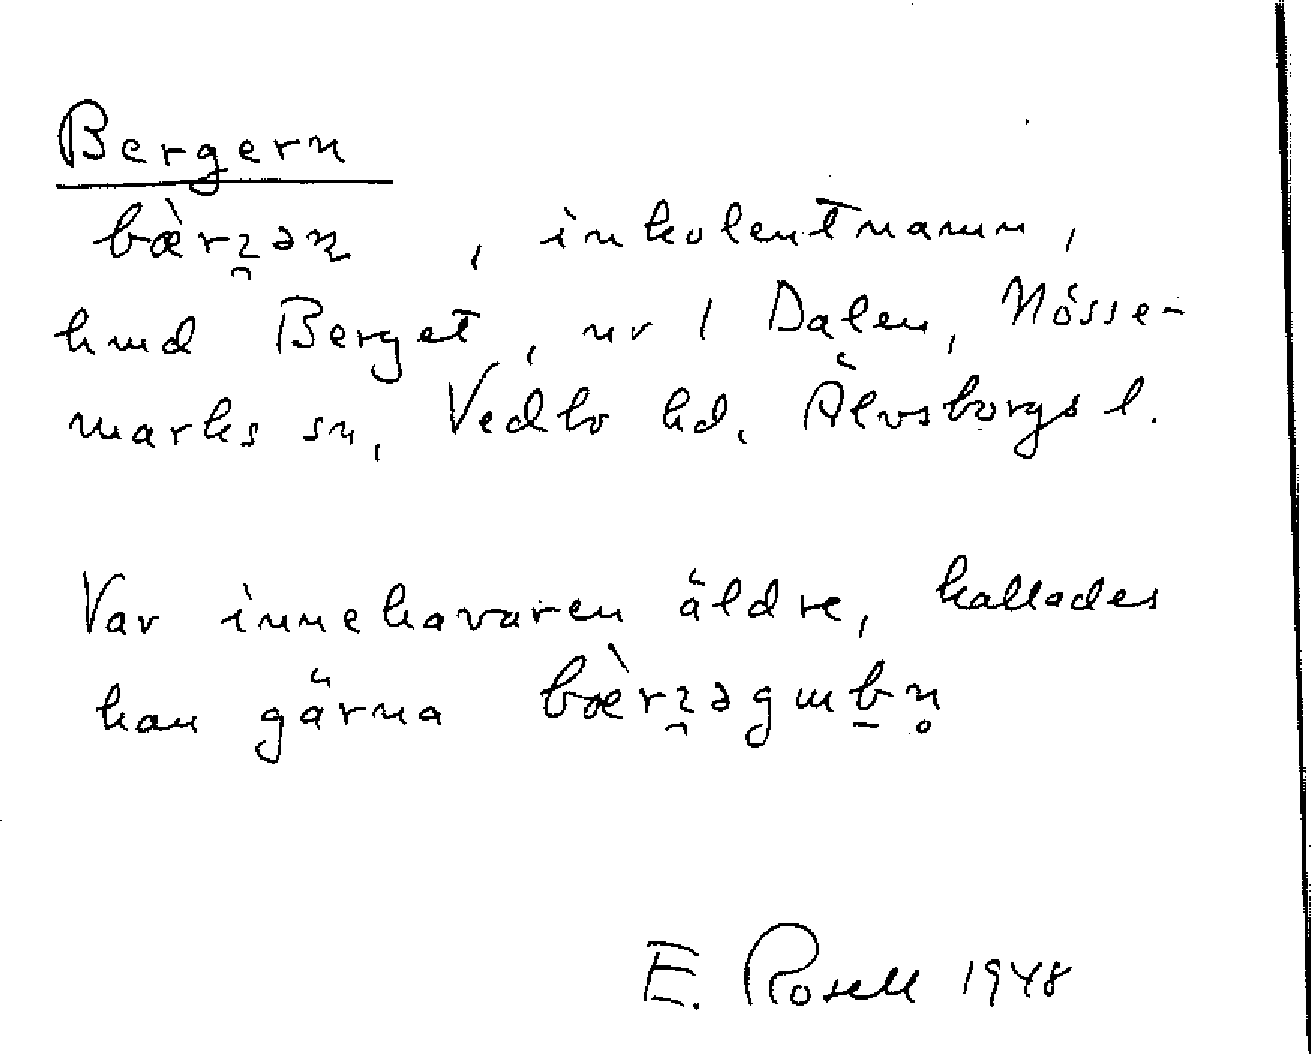 Bergern
bær̀ȥən, inkolentnamn,
hmd Berget, nr 1 Dalen, Nösse-
marks sn, Vedbo hd. Älvsborgs l.
Var innehavaren äldre, kallades
han gärna
E. Rosell 1948